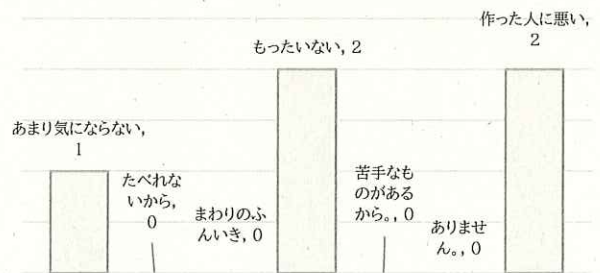 あまり気にならない,
1
たべれな
いから,
0
まわりのふ
んいき, 0
もったいない, 2
苦手なも
のがある
から。, 0
ありませ
ん。, 0
作った人に悪い,
2